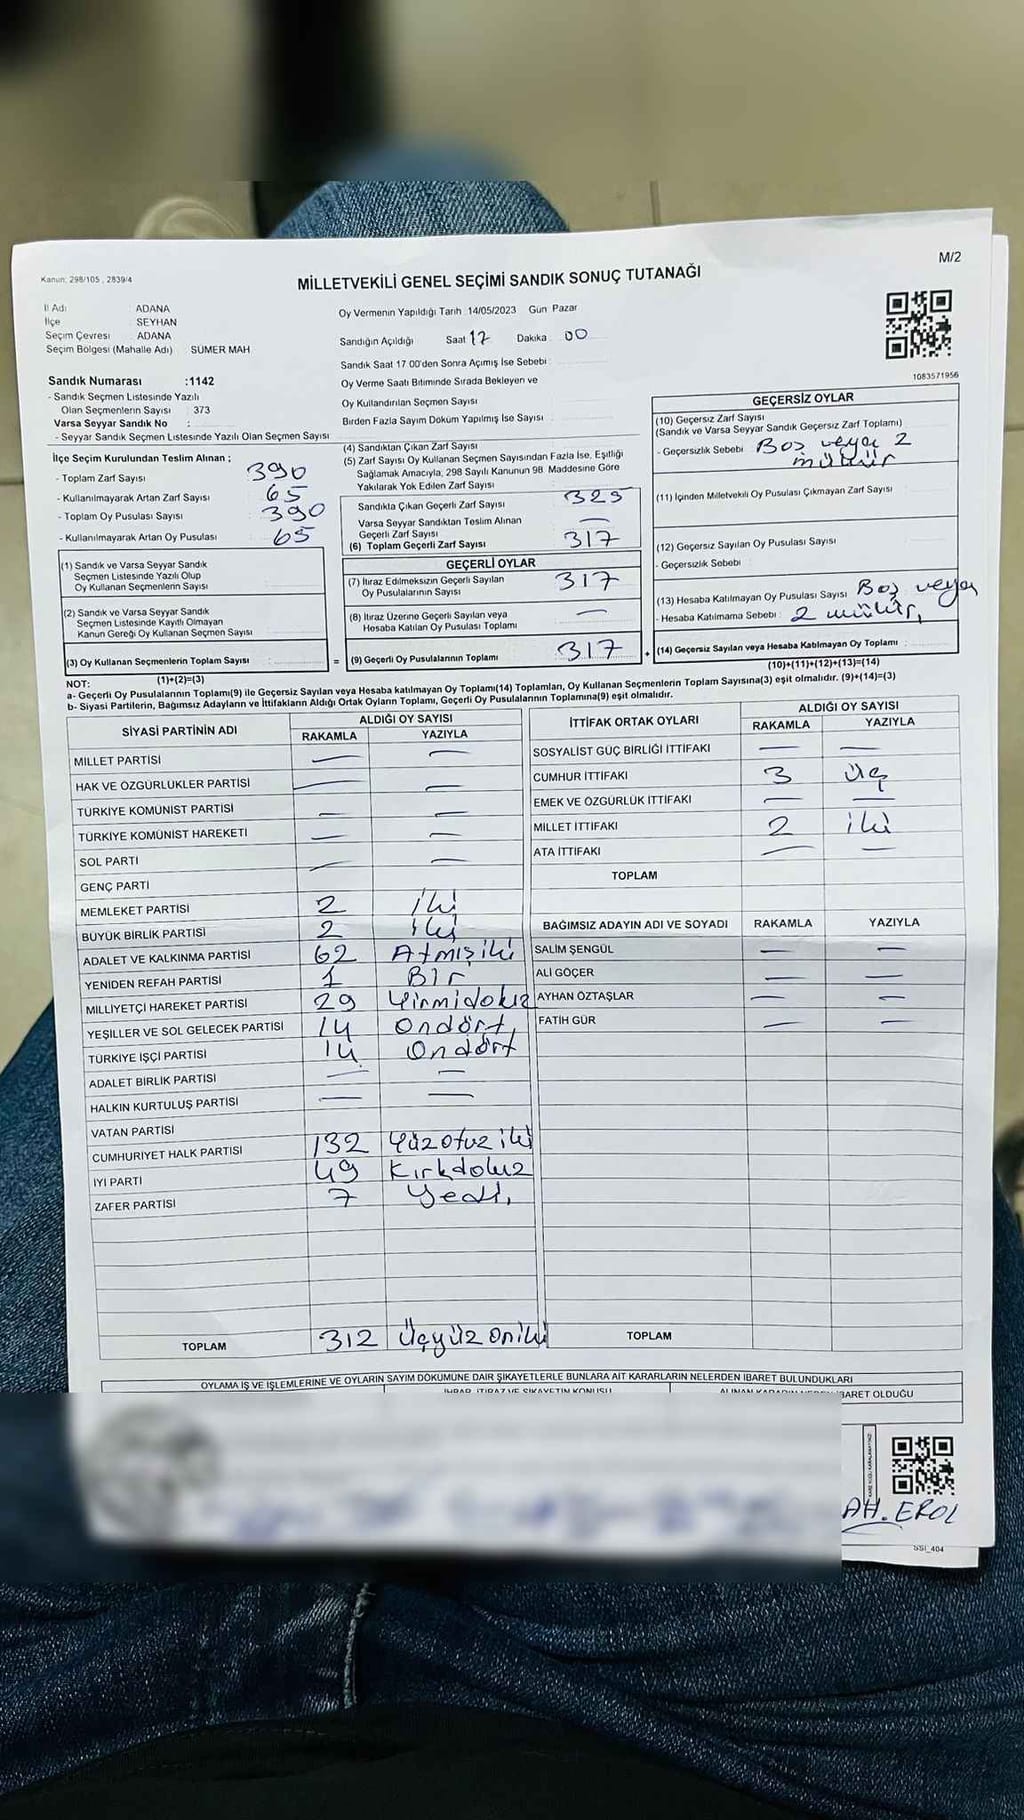 M/2
Kanun: 298/105 , 2839/4
MİLLETVEKİLİ GENEL SEÇİMİ SANDIK SONUÇ TUTANAĞI
İl Adı ADANA
İlçe SEYHAN
Seçim Çevresi ADANA
Seçim Bölgesi (Mahalle Adı) SÜMER MAH
Sandık Numarası :1142
- Sandık Seçmen Listesinde Yazılı
Olan Seçmenlerin Sayısı : 373
Varsa Seyyar Sandık No :
- Seyyar Sandık Seçmen Listesinde Yazılı Olan Seçmen Sayısı
İlçe Seçim Kurulundan Teslim Alınan ;
- Toplam Zarf Sayısı 390
- Kullanılmayarak Artan Zarf Sayısı 65
- Toplam Oy Pusulası Sayısı 390
- Kullanılmayarak Artan Oy Pusulası 65
(1) Sandık ve Varsa Seyyar Sandık
Seçmen Listesinde Yazılı Olup
Oy Kullanan Seçmenlerin Sayısı
(2) Sandık ve Varsa Seyyar Sandık
Seçmen Listesinde Kayıtlı Olmayan
Kanun Gereği Oy Kullanan Seçmen Sayısı
(3) Oy Kullanan Seçmenlerin Toplam Sayısı
(1)+(2)=(3)
Oy Vermenin Yapıldığı Tarih 14/05/2023 Gün Pazar
Sandığın Açıldığı Saat 17 Dakika 00
Sandık Saat 17 00'den Sonra Açımış İse Sebebi :
Oy Verme Saati Bitiminde Sırada Bekleyen ve
Oy Kullandırılan Seçmen Sayısı
Birden Fazla Sayım Döküm Yapılmış İse Sayısı :
(4) Sandıktan Çıkan Zarf Sayısı
(5) Zarf Sayısı Oy Kullanan Seçmen Sayısından Fazla İse, Eşitliği
Sağlamak Amacıyla, 298 Sayılı Kanunun 98 Maddesine Göre
Yakılarak Yok Edilen Zarf Sayısı
Sandıkta Çıkan Geçerli Zarf Sayısı 325
Varsa Seyyar Sandıktan Teslim Alınan
Geçerli Zarf Sayısı —
(6) Toplam Geçerli Zarf Sayısı 317
GEÇERLİ OYLAR
(7) İtiraz Edilmeksizin Geçerli Sayılan
Oy Pusulalarının Sayısı 317
(8) İtiraz Üzerine Geçerli Sayılan veya
Hesaba Katılan Oy Pusulası Toplamı —
= (9) Geçerli Oy Pusulalarının Toplamı 317 +
1083571956
GEÇERSİZ OYLAR
(10) Geçersiz Zarf Sayısı
(Sandık ve Varsa Seyyar Sandık Geçersiz Zarf Toplamı)
- Geçersizlik Sebebi : Boş veya 2
mühür
(11) İçinden Milletvekili Oy Pusulası Çıkmayan Zarf Sayısı
(12) Geçersiz Sayılan Oy Pusulası Sayısı
- Geçersizlik Sebebi
(13) Hesaba Katılmayan Oy Pusulası Sayısı Boş veya
- Hesaba Katılmama Sebebi : 2 mühür,
(14) Geçersiz Sayılan veya Hesaba Katılmayan Oy Toplamı
(10)+(11)+(12)+(13)=(14)
NOT:
a- Geçerli Oy Pusulalarının Toplamı(9) ile Geçersiz Sayılan veya Hesaba katılmayan Oy Toplamı(14) Toplamları, Oy Kullanan Seçmenlerin Toplam Sayısına(3) eşit olmalıdır. (9)+(14)=(3)
b- Siyasi Partilerin, Bağımsız Adayların ve İttifakların Aldığı Ortak Oyların Toplamı, Geçerli Oy Pusulalarının Toplamına(9) eşit olmalıdır.
SİYASİ PARTİNİN ADI ALDIĞI OY SAYISI
RAKAMLA YAZIYLA
MİLLET PARTİSİ — —
HAK VE ÖZGÜRLÜKLER PARTİSİ — —
TÜRKİYE KOMÜNİST PARTİSİ — —
TÜRKİYE KOMÜNİST HAREKETİ — —
SOL PARTİ — —
GENÇ PARTİ
MEMLEKET PARTİSİ 2 iki
BÜYÜK BİRLİK PARTİSİ 2 iki
ADALET VE KALKINMA PARTİSİ 62 Atmışiki
YENİDEN REFAH PARTİSİ 1 Bir
MİLLİYETÇİ HAREKET PARTİSİ 29 Yirmidokuz
YEŞİLLER VE SOL GELECEK PARTİSİ 14 Ondört,
TÜRKİYE İŞÇİ PARTİSİ 14 Ondört
ADALET BİRLİK PARTİSİ — —
HALKIN KURTULUŞ PARTİSİ — —
VATAN PARTİSİ
CUMHURİYET HALK PARTİSİ 132 Yüzotuz iki
İYİ PARTİ 49 Kırkdokuz
ZAFER PARTİSİ 7 Yedi,
TOPLAM 312 Üçyüz oniki
İTTİFAK ORTAK OYLARI ALDIĞI OY SAYISI
RAKAMLA YAZIYLA
SOSYALİST GÜÇ BİRLİĞİ İTTİFAKI — —
CUMHUR İTTİFAKI 3 üç
EMEK VE ÖZGÜRLÜK İTTİFAKI — —
MİLLET İTTİFAKI 2 iki
ATA İTTİFAKI — —
TOPLAM
BAĞIMSIZ ADAYIN ADI VE SOYADI RAKAMLA YAZIYLA
SALİM ŞENGÜL — —
ALİ GÖÇER — —
AYHAN ÖZTAŞLAR — —
FATİH GÜR — —
TOPLAM
OYLAMA İŞ VE İŞLEMLERİNE VE OYLARIN SAYIM DÖKÜMÜNE DAİR ŞİKAYETLERLE BUNLARA AİT KARARLARIN NELERDEN İBARET BULUNDUKLARI
İHBAR, İTİRAZ VE ŞİKAYETİN KONUSU İBARET OLDUĞU
AH. EROL
SSI_404